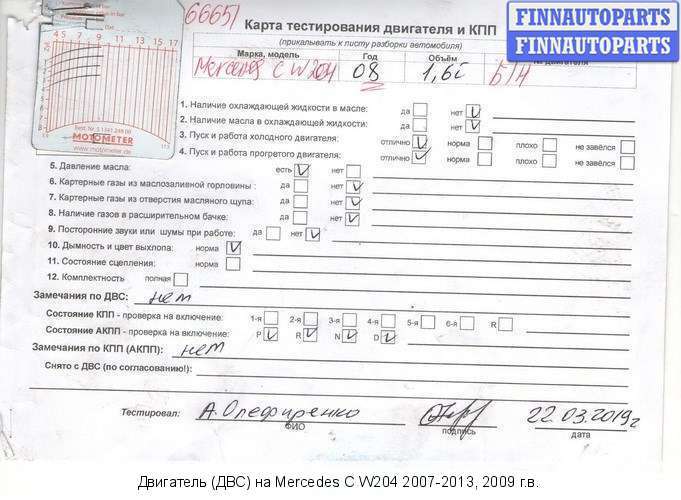 66651
FINNAUTOPARTS
FINNAUTOPARTS
Карта тестирования двигателя и КПП
(прикалывать к листу разборки автомобиля)
Марка, модель Год Объём № двигателя
Mercedes C W204 08 1,6i Б/Н
4 5 7 9 11 13 15 17
MOTOMETER
www.motometer.de
1. Наличие охлаждающей жидкости в масле: да нет V
2. Наличие масла в охлаждающей жидкости: да нет V
3. Пуск и работа холодного двигателя: отлично V норма плохо не завёлся
4. Пуск и работа прогретого двигателя: отлично V норма плохо не завёлся
5. Давление масла: есть V нет
6. Картерные газы из маслозаливной горловины : да нет V
7. Картерные газы из отверстия масляного щупа: да нет V
8. Наличие газов в расширительном бачке: да нет V
9. Посторонние звуки или шумы при работе: да нет V
10. Дымность и цвет выхлопа: норма V
11. Состояние сцепления: норма
12. Комплектность полная
Замечания по ДВС: нет
Состояние КПП - проверка на включение: 1-я 2-я 3-я 4-я 5-я 6-я R
Состояние АКПП - проверка на включение: P V R V N V D V
Замечания по КПП (АКПП): нет
Снято с ДВС (по согласованию!):
Тестировал: А. Олефиренко 22.03.2019г
ФИО подпись дата
Двигатель (ДВС) на Mercedes C W204 2007-2013, 2009 г.в.